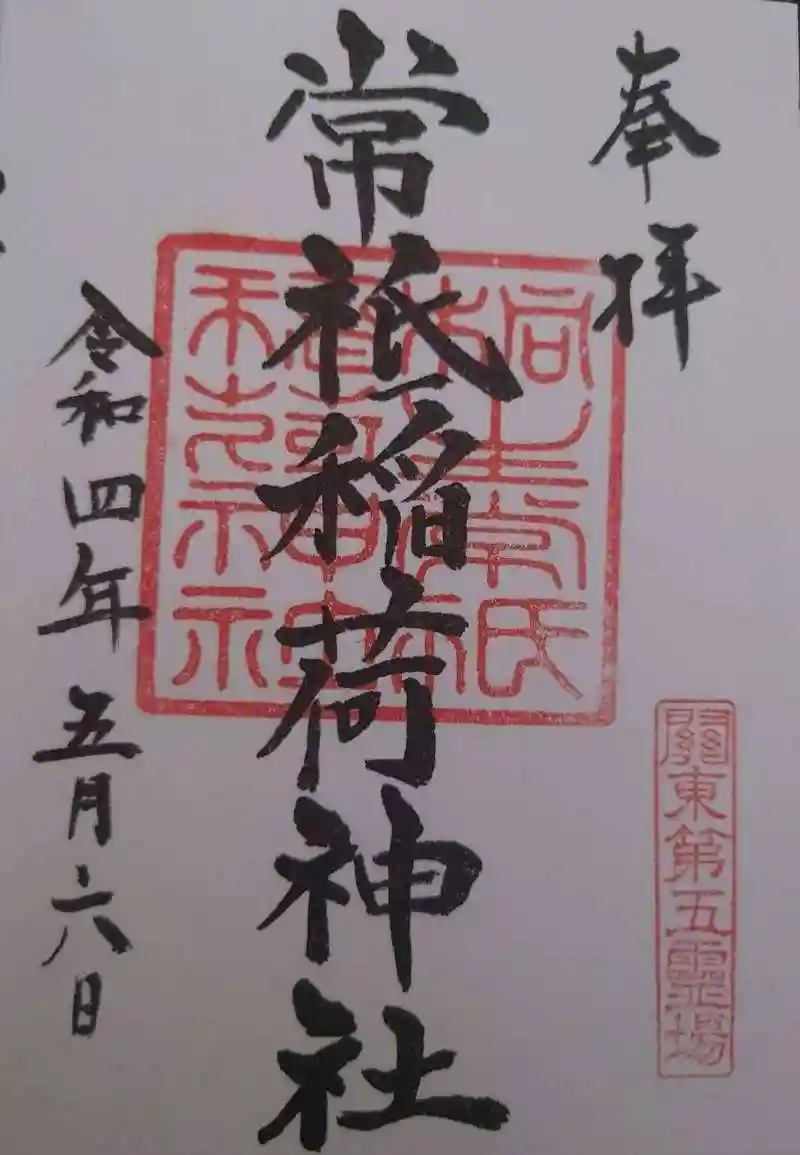 奉拝
關東第五霊場
常祇稲荷神社
令和四年五月六日